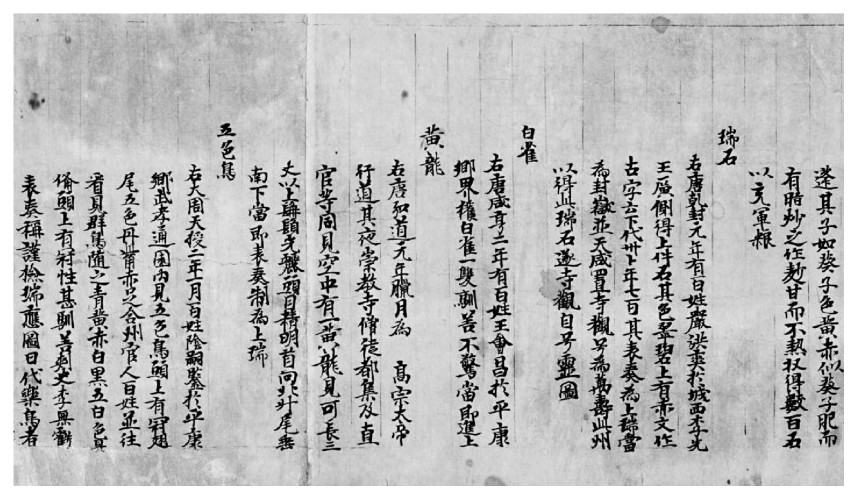 蓬其子如葵子色黄赤似葵子肥而
有脂炒之作麨甘而不熱收得數百石
以充軍粮
瑞石
右唐乾封元年有百姓嚴洪爽於城西李先
王廟側得上件石其色翠碧上有赤文作
古字云下代卅卜年七百其表奏為上瑞當
為封嶽並天咸置寺觀号為萬壽此州
以得此瑞石遂寺觀自号靈圖
白雀
右唐咸亨二年有百姓王會昌於平康
鄉界獲白雀一雙馴善不驚當即進上
黄龍
右唐弘道元年臘月為 高宗大帝
行道其夜崇教寺僧徒都集及直
官等同見空中有一黄龍見可長三
丈以上髯鬚光麗頭目精明首向北升尾垂
南下當即表奏制為上瑞
五色鳥
右大周天授二年一月百姓陰嗣鑒於平康
鄉武孝通園内見五色鳥頭上有冠翅
尾五色丹觜赤足合州官人百姓並往
看見群鳥随之青黄赤白黑五白色具
俻頭上有冠性甚馴善刺史李無虧
表奏稱謹檢瑞應圖曰代樂鳥者